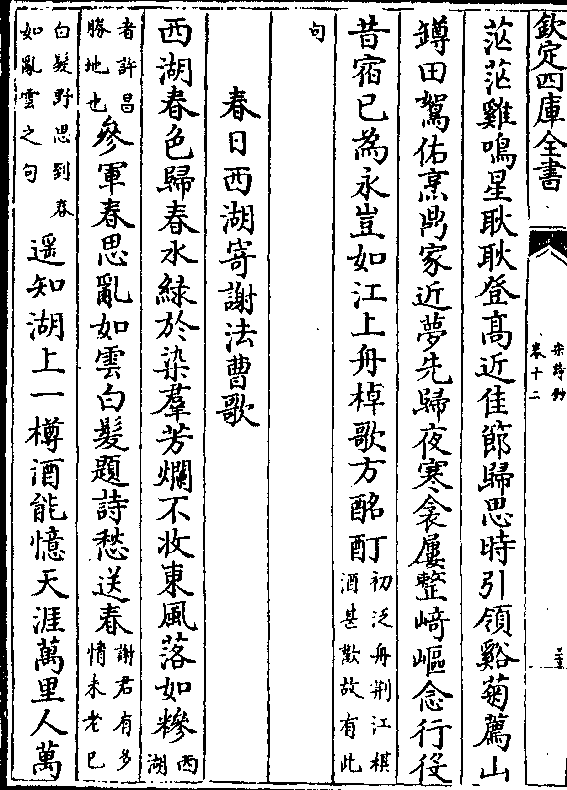 欽定四庫全書
宋詩鈔
卷十二
茫茫雞鳴星耿耿登高近佳節歸思時引領谿菊薦山
鐏田駕佑烹鼎家近夢先歸夜寒衾屢整崎嶇念行役
昔宿已為永豈如江上舟棹歌方酩酊初泛舟荆江棋
酒甚歡故有此
句
春日西湖寄謝法曹歌
西湖春色歸春水綠於染羣芳爛不收東風落如糝西
湖
者許昌
勝地也參軍春思亂如雲白髮題詩愁送春謝君有多
情未老已
白髮野思到春
如亂雲之句遥知湖上一樽酒能憶天涯萬里人萬